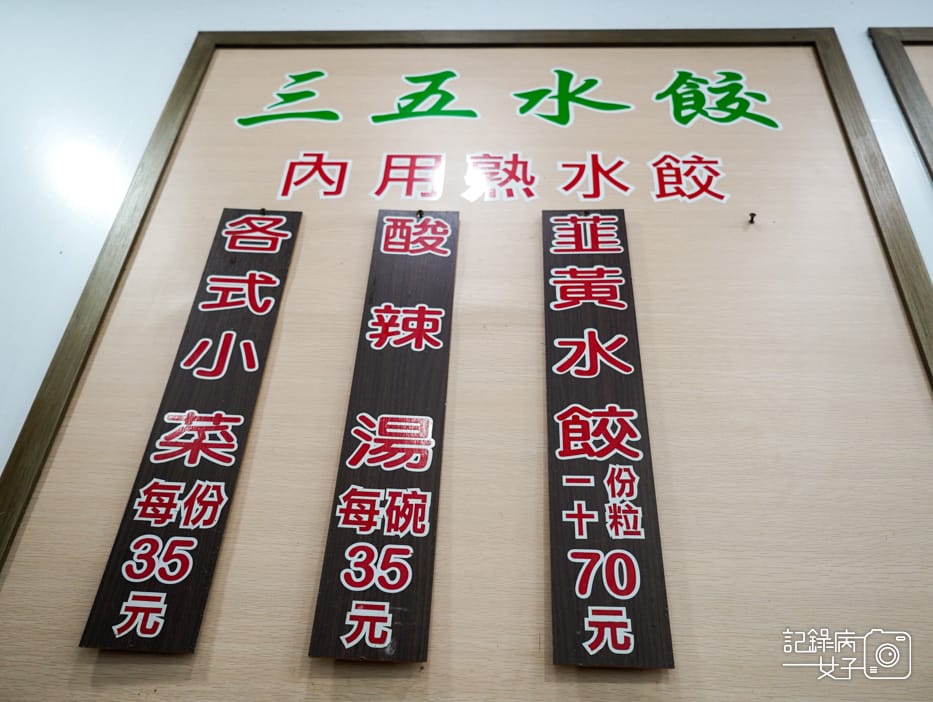 三五水餃
內用熟水餃
韮黃水餃
一份
十粒
70
元
酸辣湯
每碗
35
元
各式小菜
每份
35
元
記錄病
女子